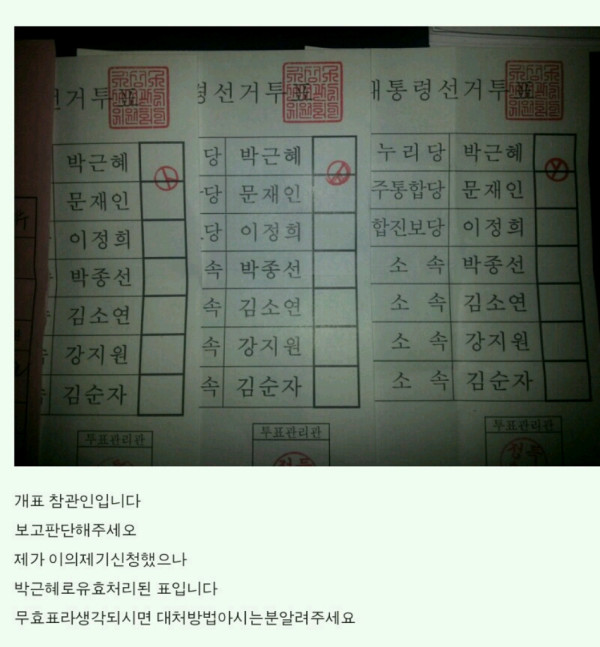 거투표
박근혜
문재인
이정희
박종선
김소연
강지원
김순자
투표관리관
선거투표
당 박근혜
당 문재인
당 이정희
속 박종선
속 김소연
속 강지원
속 김순자
투표관리관
통령선거투표
누리당 박근혜
주통합당 문재인
합진보당 이정희
소 속 박종선
소 속 김소연
소 속 강지원
소 속 김순자
투표관리관
개표 참관인입니다
보고판단해주세오
제가 이의제기신청했으나
박근혜로유효처리된 표입니다
무효표라생각되시면 대처방법아시는분알려주세요